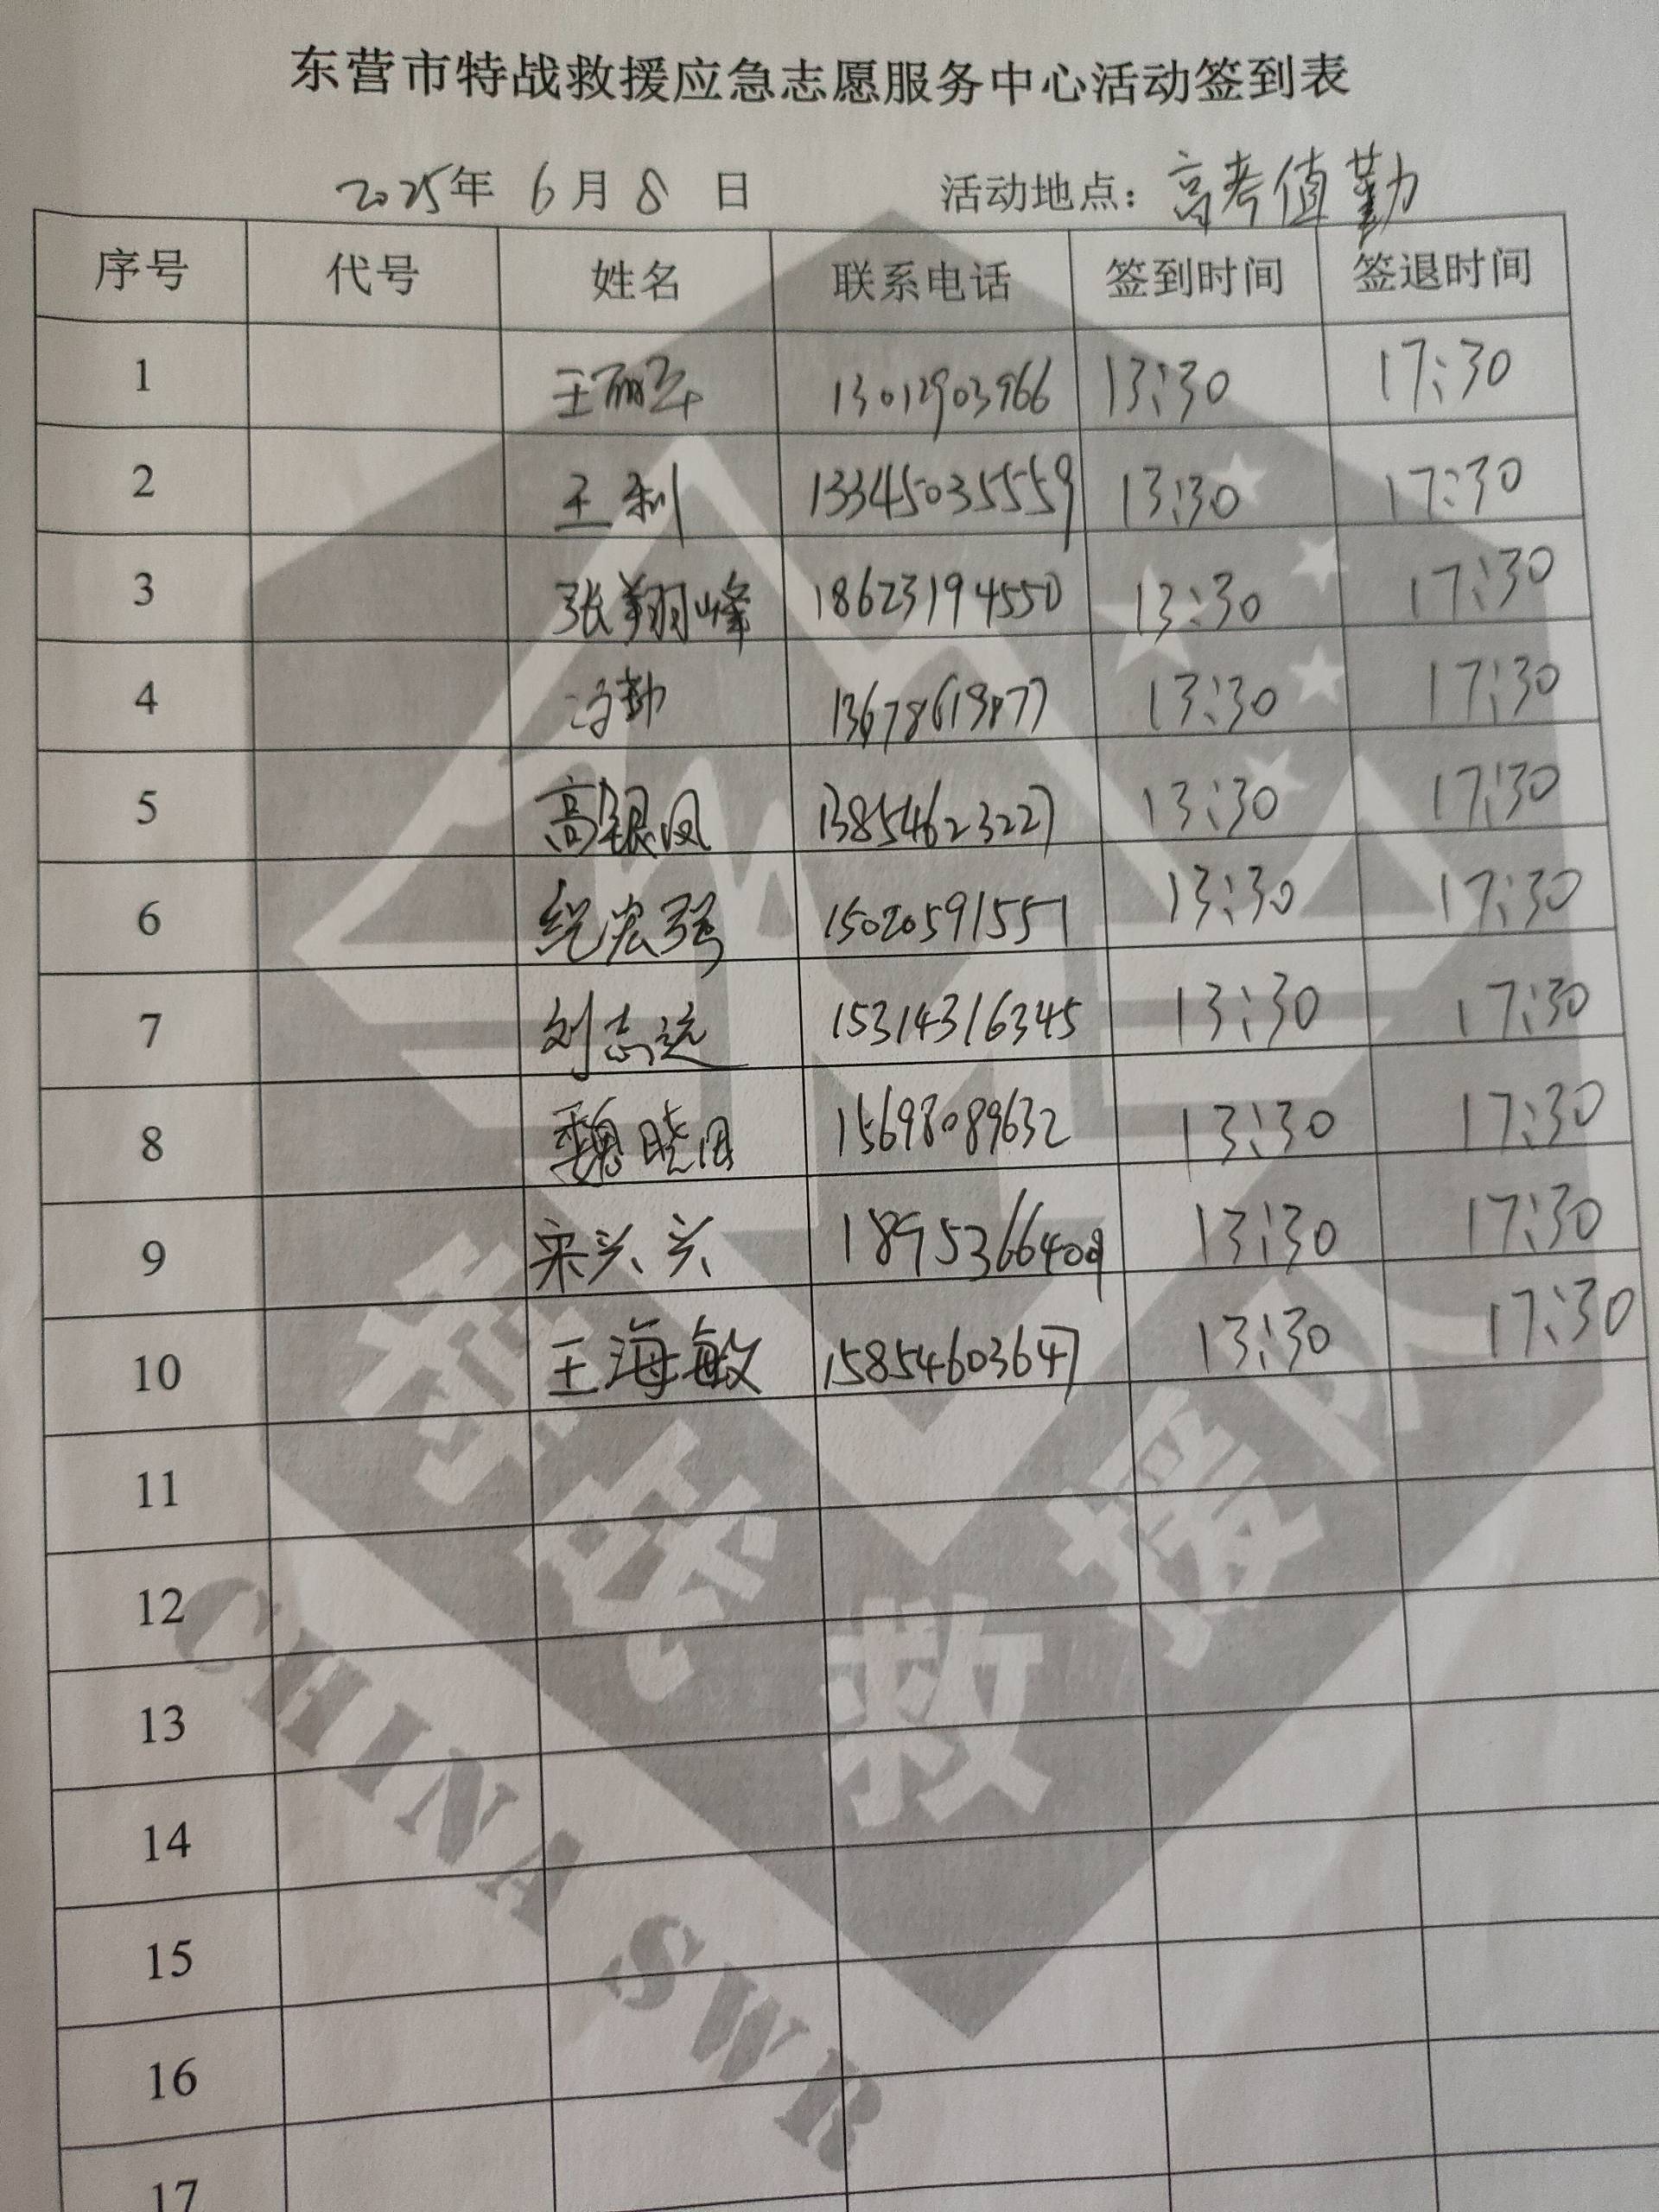 东营市特战救援应急志愿服务中心活动签到表
2025年 6月 8 日 活动地点：高考值勤
序号 代号 姓名 联系电话 签到时间 签退时间
1 王丽军 13012903966 13:30 17:30
2 王利 13345035559 13:30 17:30
3 张翔峰 18623194550 13:30 17:30
4 13:30 17:30
5 高银凤 13854623227 13:30 17:30
6 纪宏强 15020591551 13:30 17:30
7 刘志远 15314316345 13:30 17:30
8 魏晓田 15698089632 13:30 17:30
9 宋兴兴 1895366409 13:30 17:30
10 王海敏 15854603647 13:30 17:30
11
12
13
14
15
16
17
特战救援队
CHINA SWR